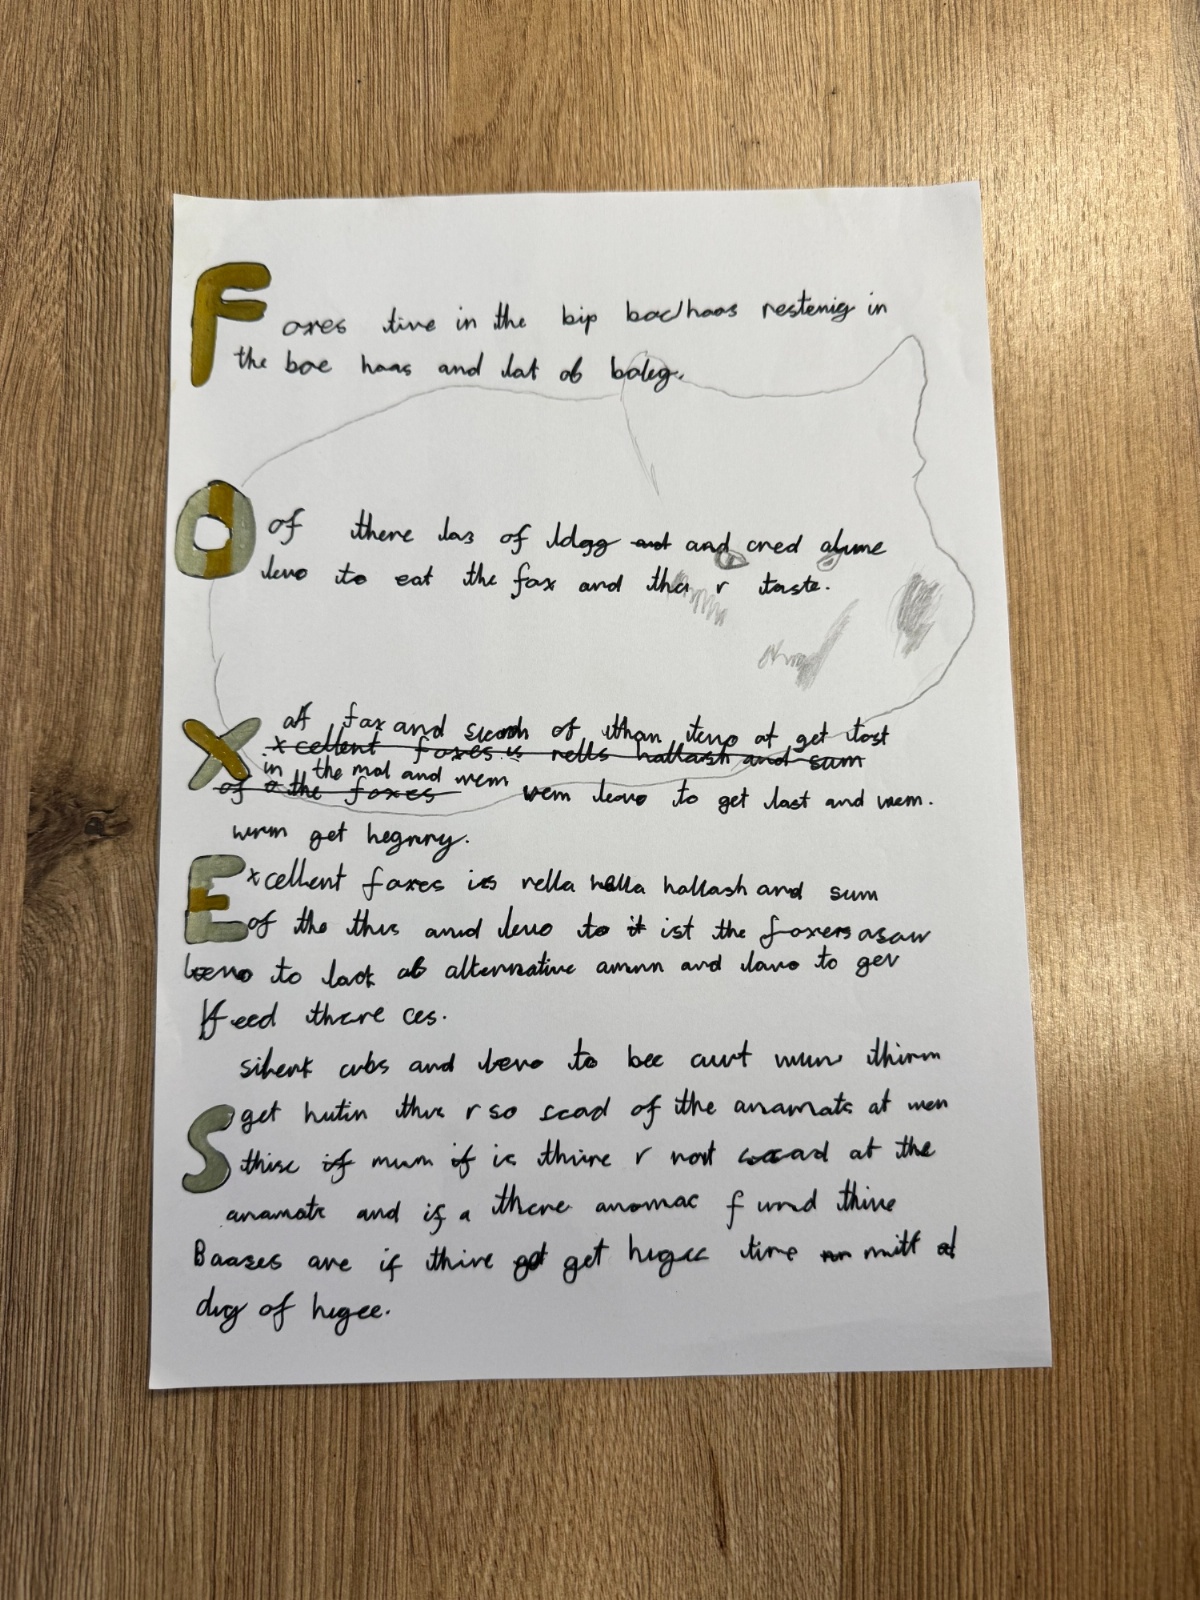 Foxes live in the bip bac/haas restenig in
the bae haas and lat of baleg.
O of there las of ldgg and and cred alume
levo to eat the fox and tha r taste.
X at fax and scood of than levo at get tast
xcellent foxes is rells hallash and sum
in the mol and wem
of the foxes wem levo to get last and wem.
wrm get hegnry.
Excellent foxes is rella hella hallash and sum
of the thus and levo to it ist the foxers asaw
levo to lack ab alternative amnn and lavo to gev
feed there ces.
silent cubs and levo to bee aurt wun thirm
S get hutin thus r so scad of the anamats at wen
thise if mum if is thire r nort scad at the
anamats and if a there anomac f urnd thire
Baases are if thire got get higee time nn mitt at
dug of higee.